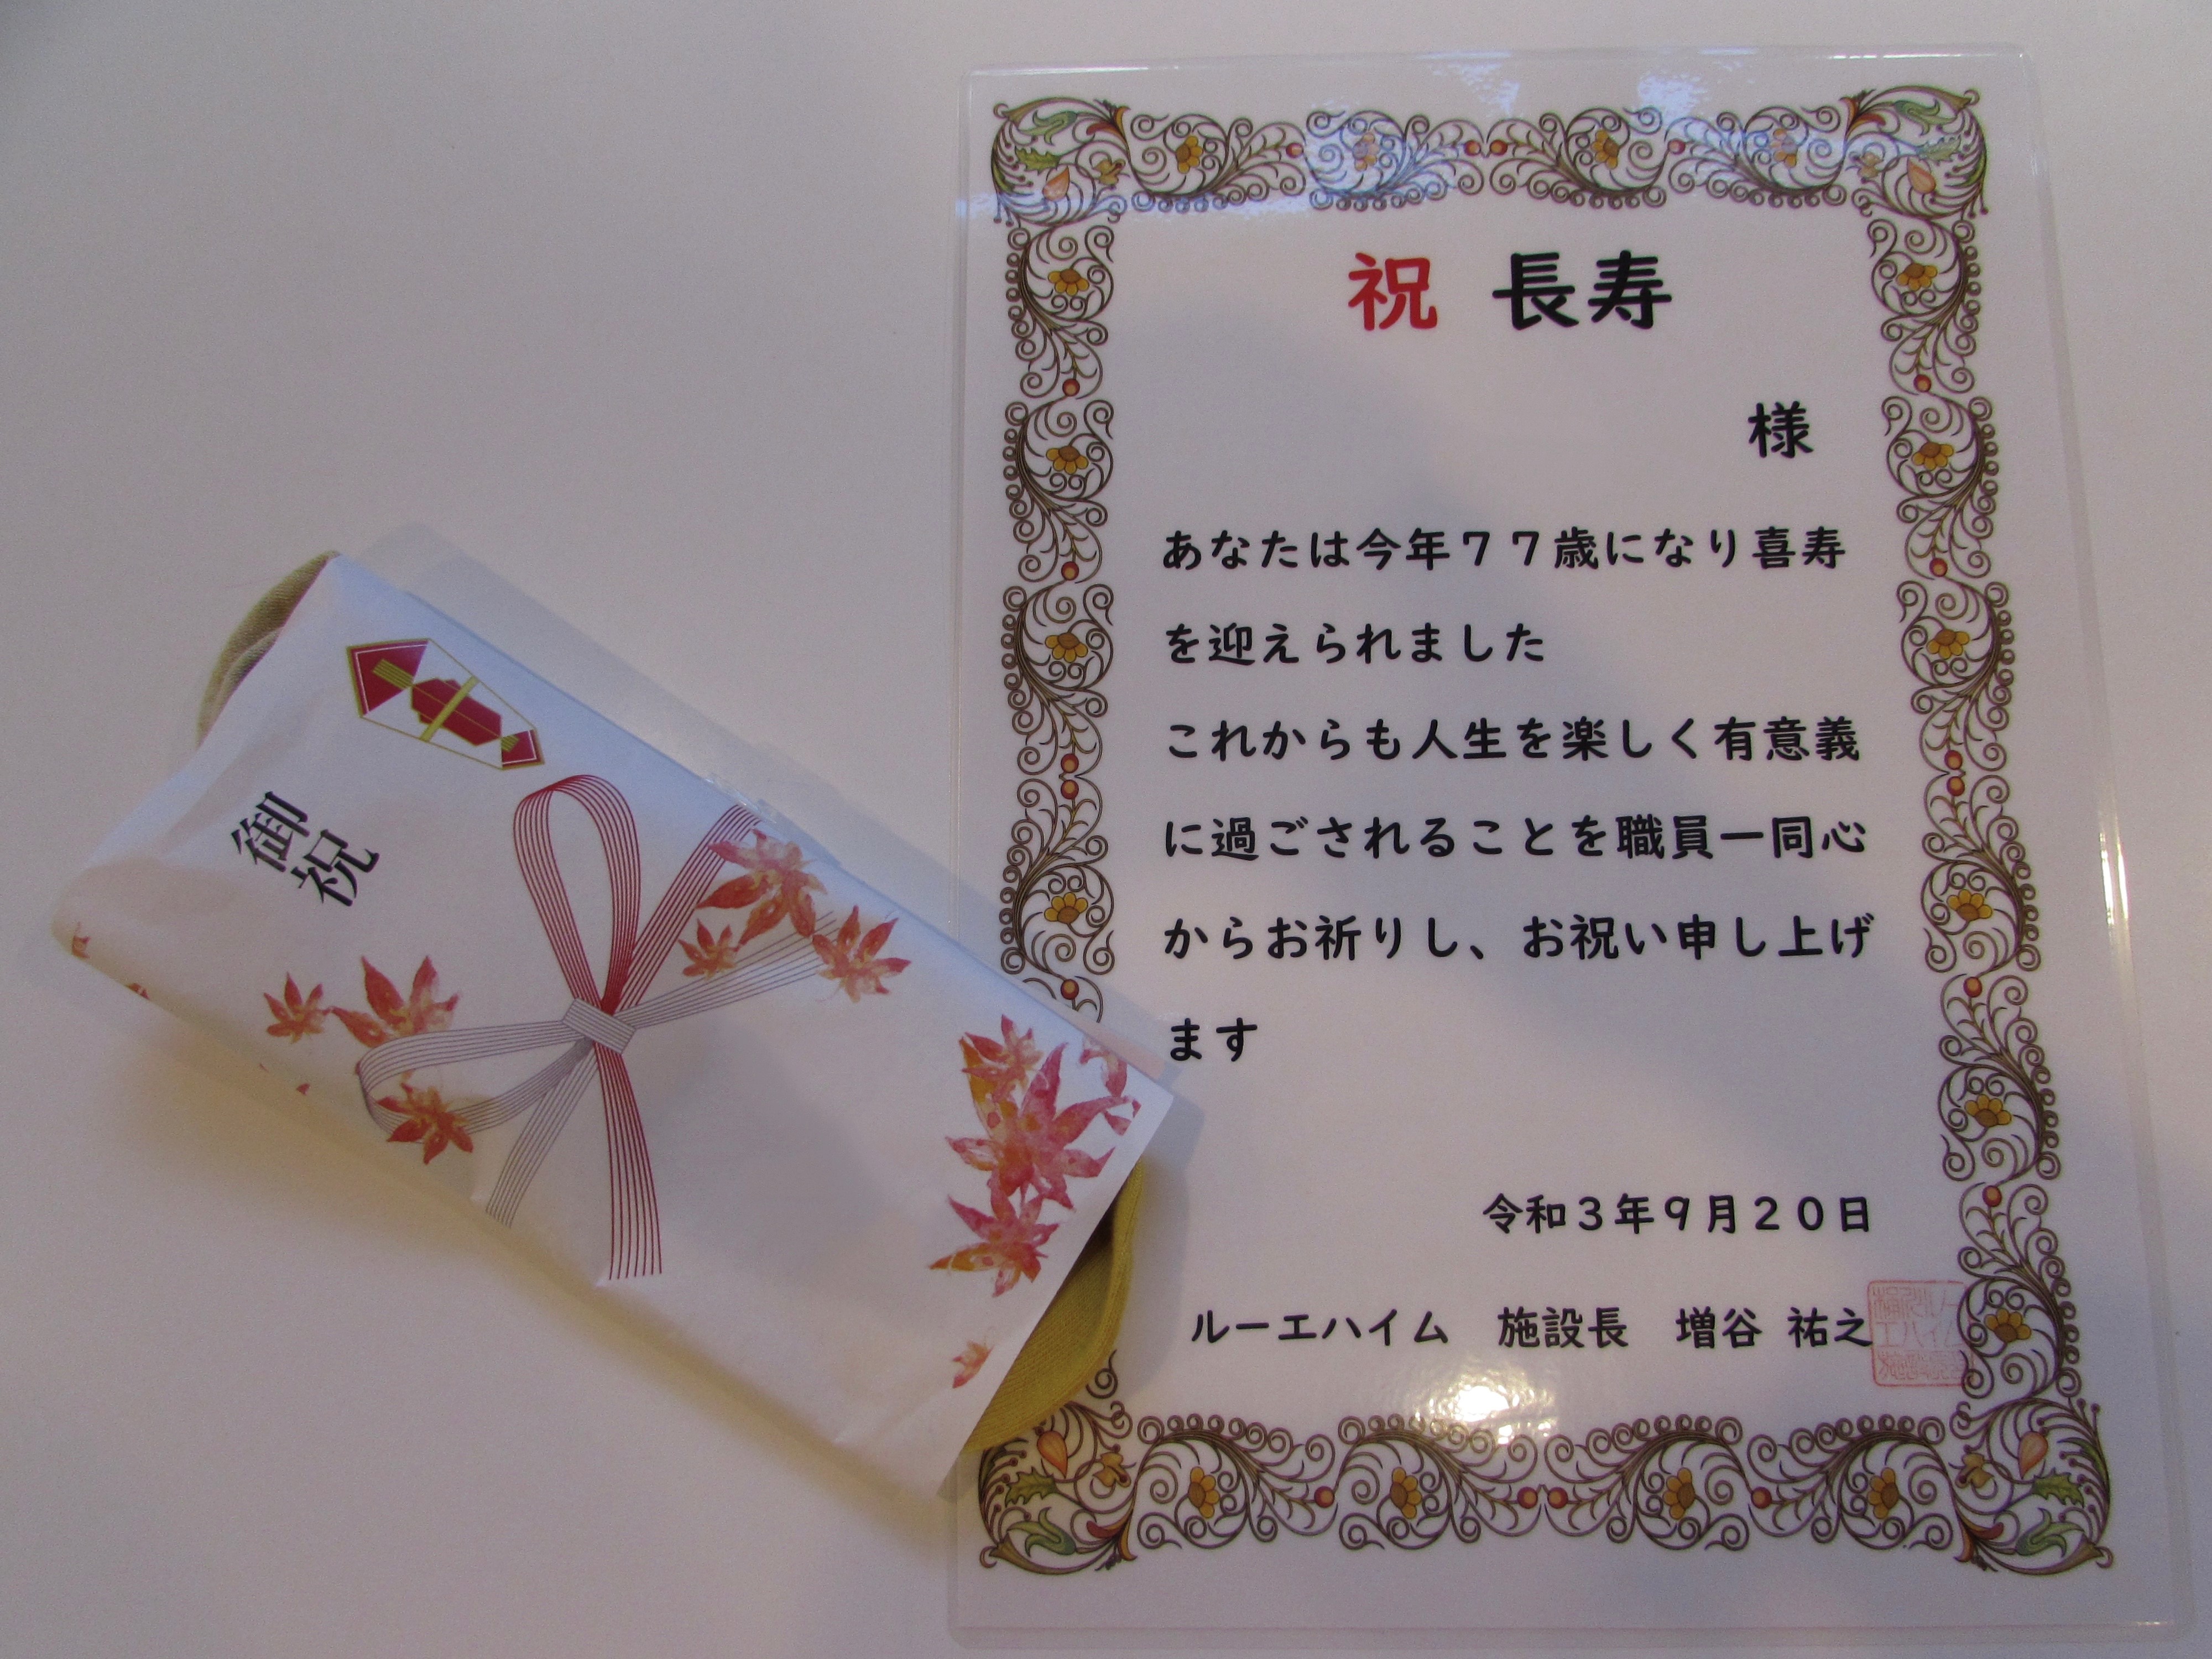 祝 長寿
様
あなたは今年７７歳になり喜寿
を迎えられました
これからも人生を楽しく有意義
に過ごされることを職員一同心
からお祈りし、お祝い申し上げ
ます
令和３年９月２０日
ルーエハイム 施設長 増谷 祐之
御祝